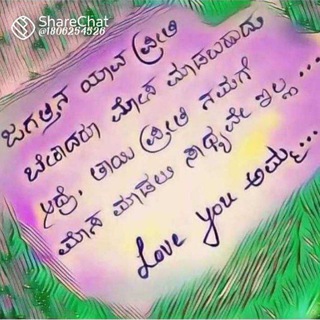 ShareChat
@1806254526
ಜಗತ್ತಿನ ಯಾವ ಪ್ರೀತಿ
ಬೇಕಾದರೂ ಮೋಸ ಮಾಡಬಹುದು
ಆದ್ರೆ, ತಾಯಿ ಪ್ರೀತಿ ನಮಗೆ
ಮೋಸ ಮಾಡಲು ಸಾಧ್ಯವೇ ಇಲ್ಲ...
Love you ಅಮ್ಮ...